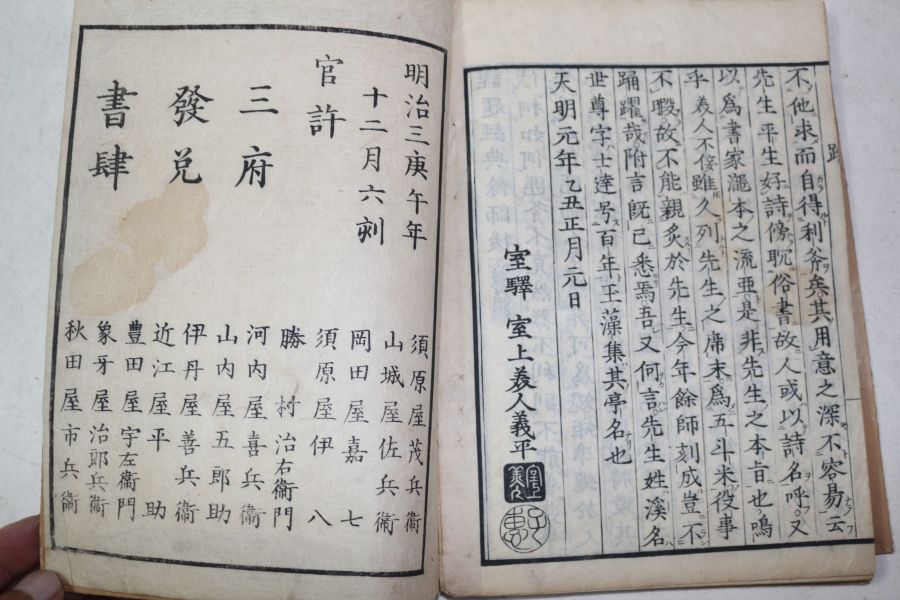 不他求而自得利斧矣其用意之深不容易云
先生平生好詩傍耽俗書故人或以詩名呼又
以為書家瀧本之流亞是非先生之本旨也嗚
乎美人不佞雖久列先生之席末為五斗米役事
不暇故不能親炙於先生今年餘師刻成豈不
踊躍哉附言既已悉焉吾又何言先生姓溪名
世尊字士達号百年玉藻集其亭名也
天明元年乙丑正月元日
室驛 室上美人義平
明治三庚午年
十二月六刻
官許
三府
發兌
書肆
須原屋茂兵衞
山城屋佐兵衞
岡田屋嘉七
須原屋伊八
勝村治右衞門
河内屋喜兵衞
山内屋五郎助
伊丹屋善兵衞
近江屋平助
豊田屋宇左衞門
象牙屋治郎兵衞
秋田屋市兵衞